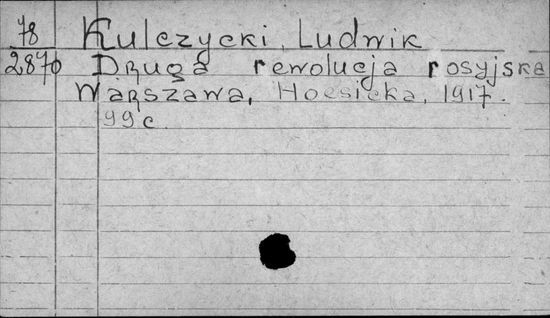 78 Kulczycki, Ludwik
2870 Druga rewolucja rosyjska
Warszawa, Hoesicka, 1917.
99 c.